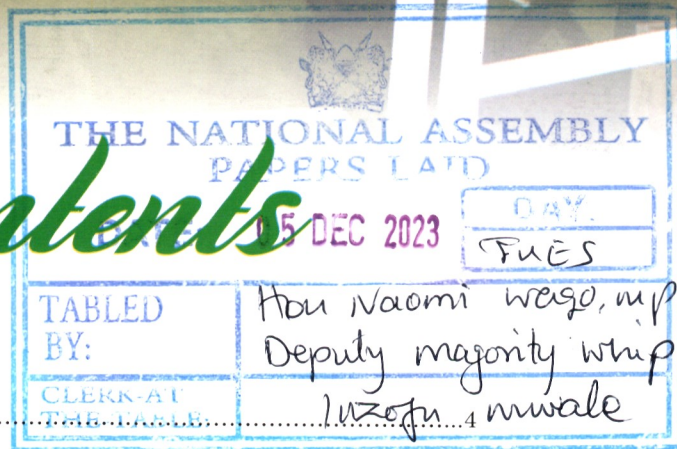 THE NATIONAL ASSEMBLY
PAPERS LAID
ntents
DATE: 05 DEC 2023
DAY.
TUES
TABLED BY:
Hon Naomi Waqo, MP
Deputy majority whip
CLERK-AT THE-TABLE:
Inzofu mwale
4